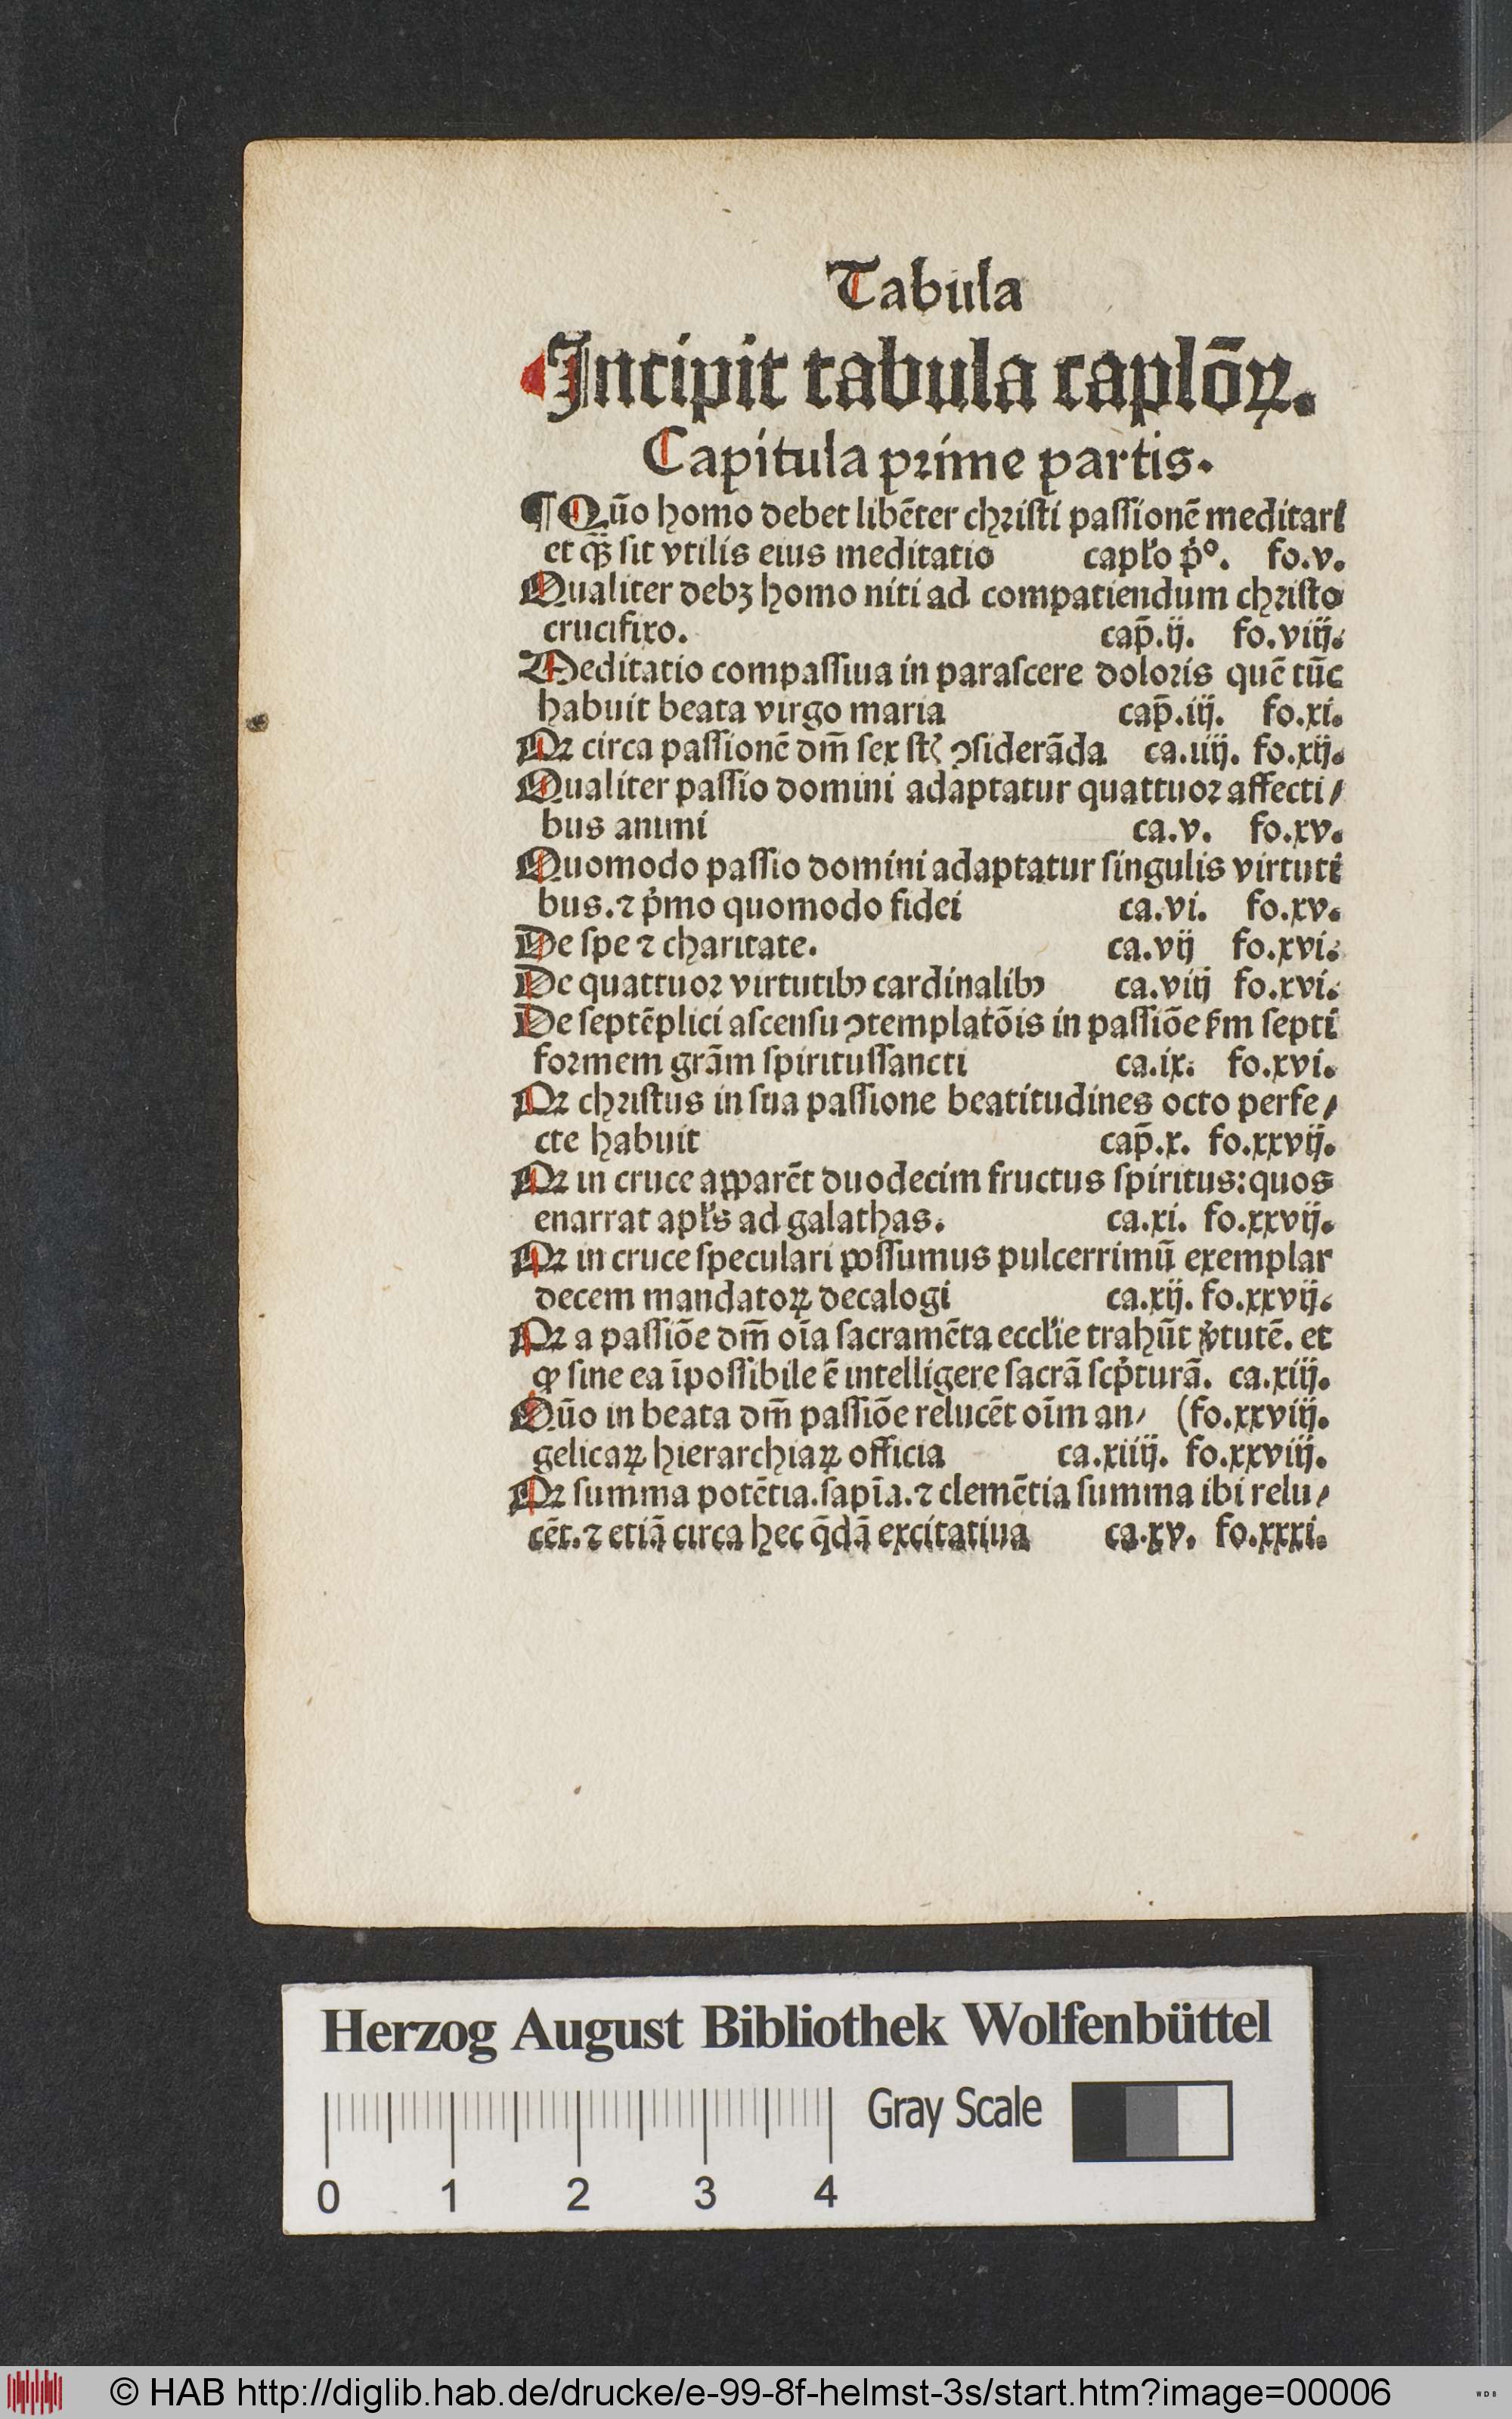 Tabula
Incipit tabula caplōꝝ.
Capitula prime partis.
¶ Quo̅ homo debet libēter christi passionē meditari
et qȝ̄ sit vtilis eius meditatio capło p̊º. fo.v.
Qualiter debꝫ homo niti ad compatiendum christo
crucifixo. cap̄.ij. fo.viij.
Meditatio compassiua in parasceue doloris quē tūc
habuit beata virgo maria cap̄.iij. fo.xi.
Qꝛ circa passionē dm̄ sex st̄ ꝯsiderāda ca.iiij. fo.xij.
Qualiter passio domini adaptatur quattuor affecti/
bus animi ca.v. fo.xv.
Quomodo passio domini adaptatur singulis virtuti
bus. ⁊ pͥmo quomodo fidei ca.vi. fo.xv.
De spe ⁊ charitate. ca.vij fo.xvi.
De quattuor virtutibꝰ cardinalibꝰ ca.viij fo.xvi.
De septēplici ascensu ꝯtemplatōis in passiōe ẜm septi
formem grām spiritussancti ca.ix. fo.xvi.
Qꝛ christus in sua passione beatitudines octo perfe/
cte habuit cap̄.x. fo.xxvij.
Qꝛ in cruce apparēt duodecim fructus spiritus:quos
enarrat apłs ad galathas. ca.xi. fo.xxvij.
Qꝛ in cruce speculari possumus pulcerrimū exemplar
decem mandatoꝝ decalogi ca.xij. fo.xxvij.
Qꝛ a passiōe dm̄ oīa sacramēta ecclie trahūt v̓tutē. et
ꝙ sine ea īpossibile ē intelligere sacrā scpͥturā. ca.xiij.
Quō in beata dm̄ passiōe relucēt oīm an/ (fo.xxviij.
gelicaꝝ hierarchiaꝝ officia ca.xiiij. fo.xxviij.
Qꝛ summa potētia.sapīa.⁊ clemētia summa ibi relu/
cēt.⁊ etiā circa hec q̄dā excitatiua ca.xv. fo.xxxi.
Herzog August Bibliothek Wolfenbüttel
Gray Scale
0 1 2 3 4
© HAB http://diglib.hab.de/drucke/e-99-8f-helmst-3s/start.htm?image=00006
WDB